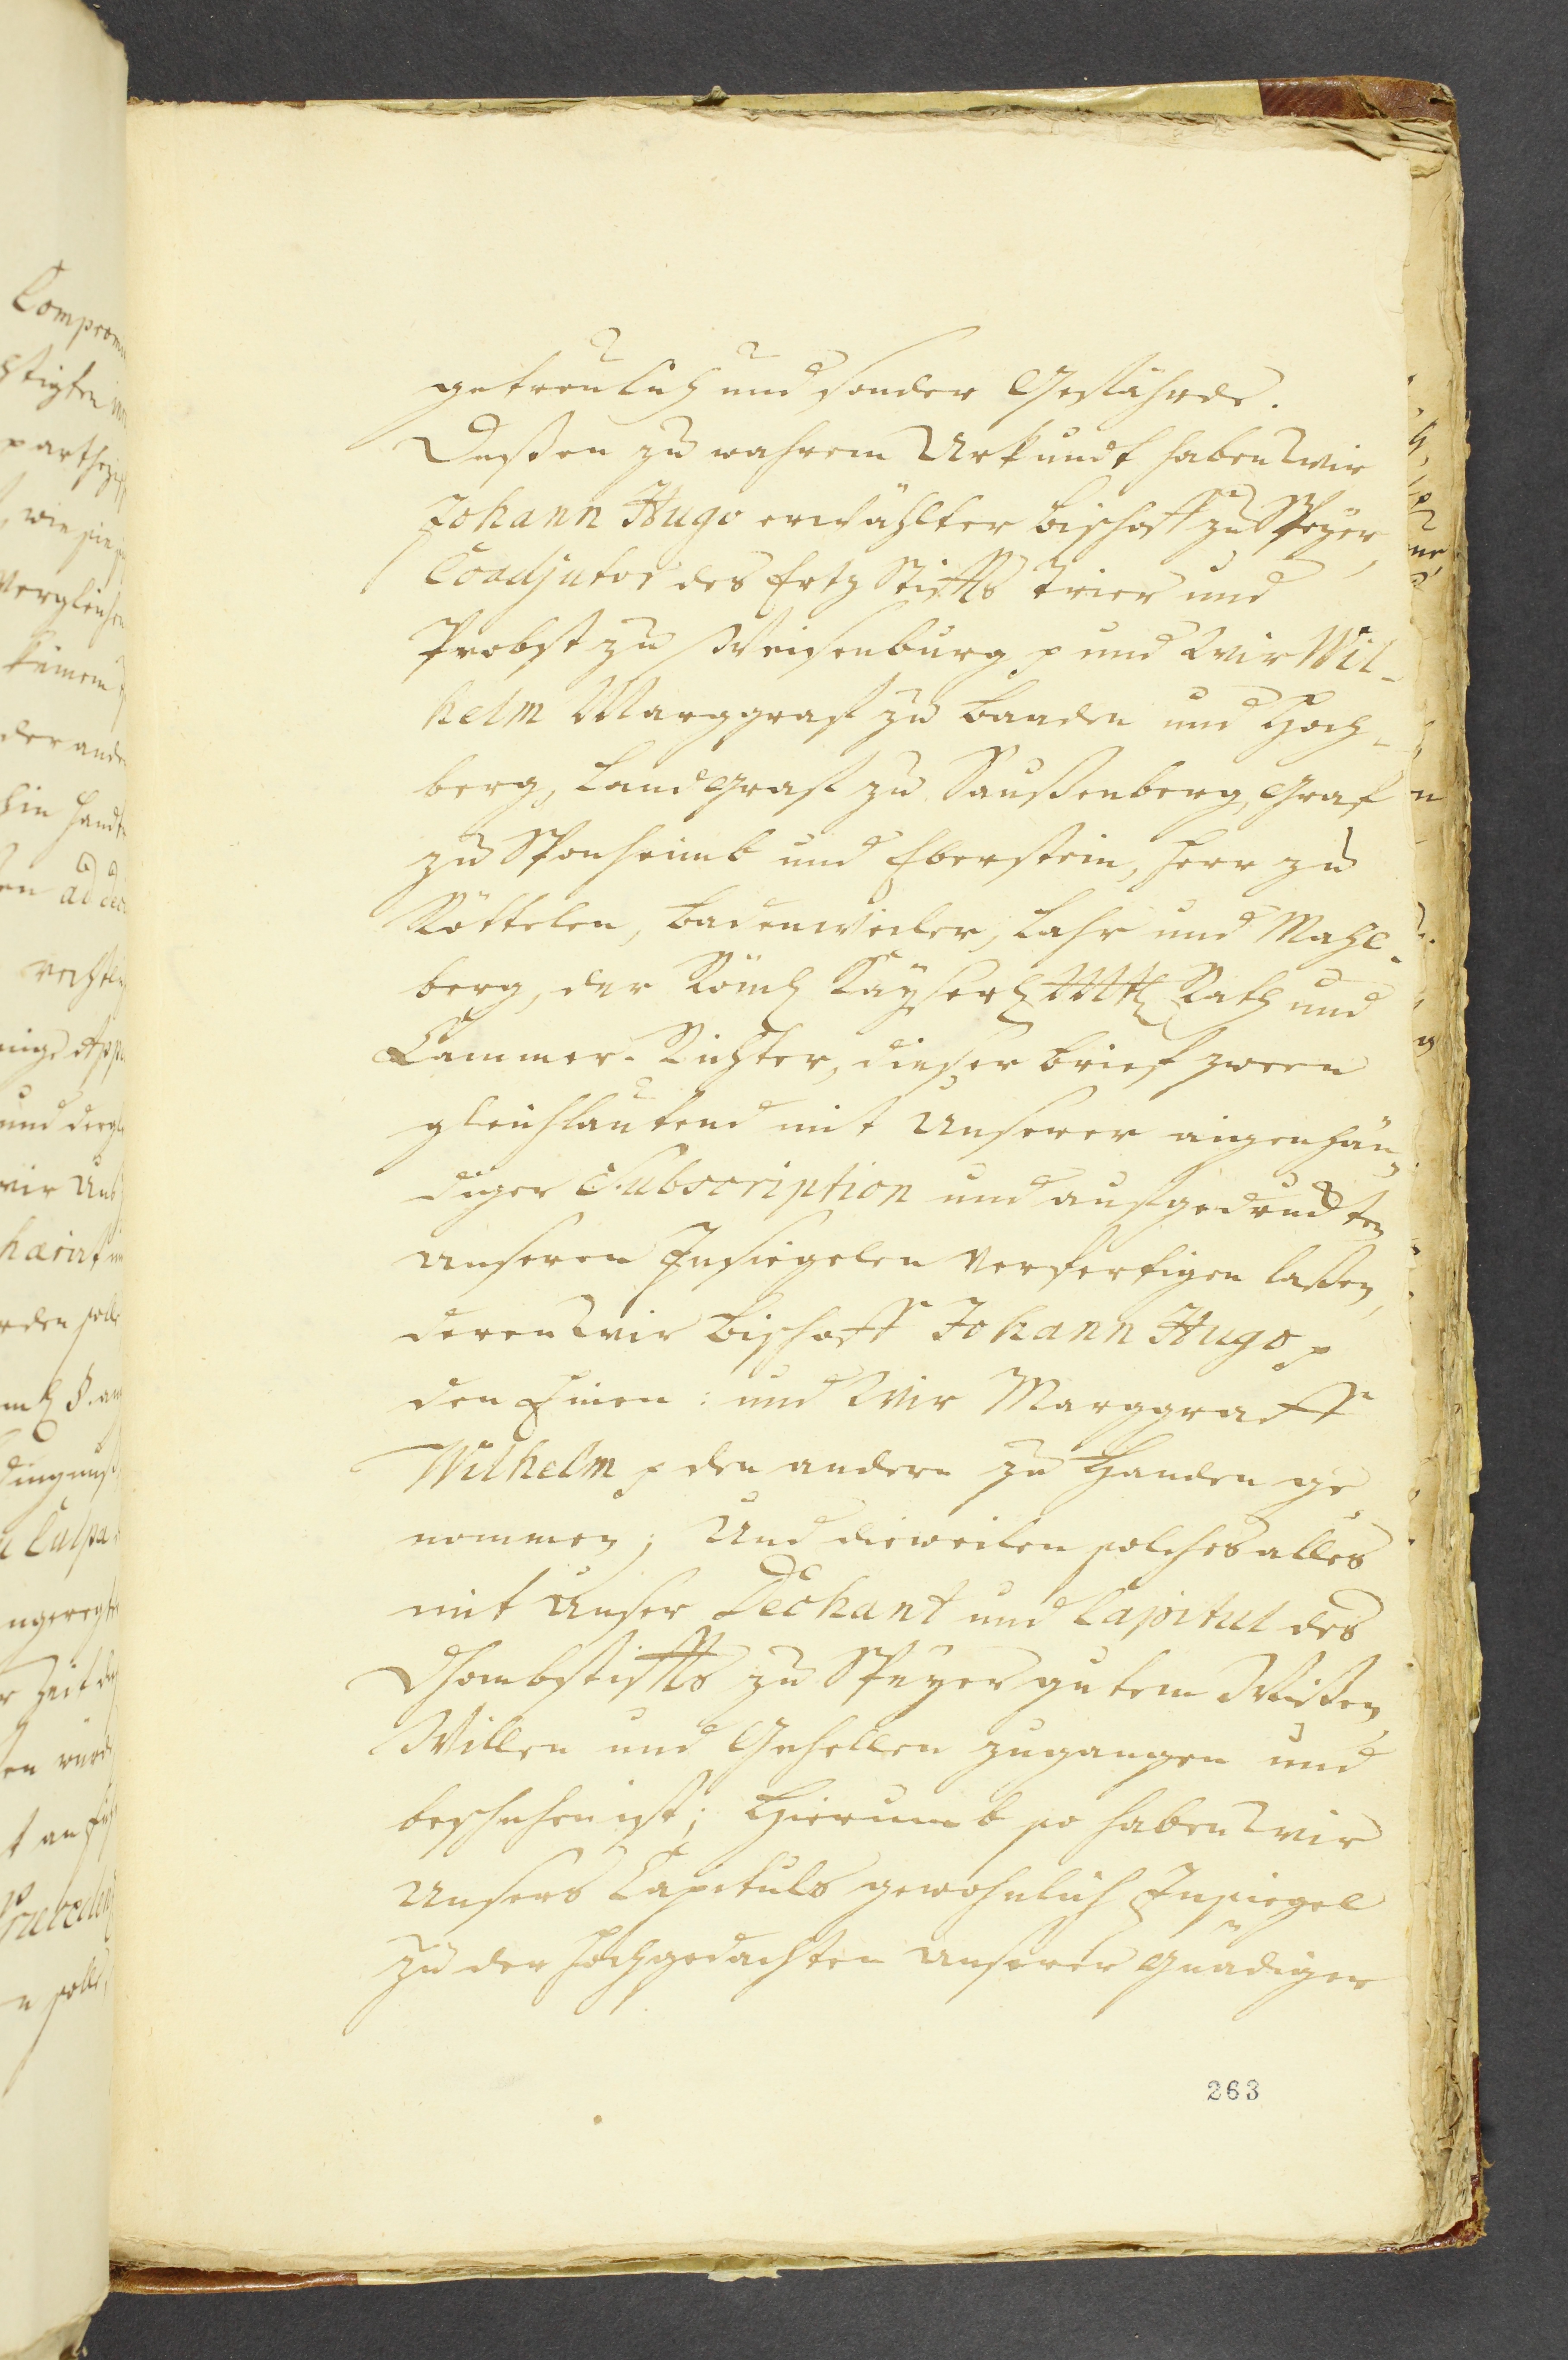 getreulich und sonder Gefährde.
Deßen zu wahrem Urkundt haben wir
Johann Hugo erwählter Bischoff zu Speyer,
Coadjutor des Ertz Stiffts Trier und
Probst zu Weisenburg p und Wir Wil-
helm Marggraf zu Baaden und Hoch-
berg, Landgraf zu Saußenberg, Graf
zu Sponheimb und Eberstein, Herr zu
Röttelen, Badenweiler, Lahr und Mahl-
berg, der Röml Kayserl Mtl Rath und
Cammer-Richter, dießer brief zween
gleichlautend mit Unserer aigenhän-
diger Subscription und aufgedruckten
Unseren Insiegelen verfertigen laßen,
deren wir Bischoff Johann Hugo p
den Einen: und Wir Marggraff
Wilhelm p den andern zu Handen ge-
nommen; Und dieweilen solches alles
mit Unser Dechant und Capitul des
Dhombstiffts zu Speyer gutem Wißen,
Willen und Gehellen zugangen und
beschehen ist; Hierumb so haben wir
Unsers Capituls gewohnlich Insiegel
zu der hochgedachten Unserer Gnädiger
263